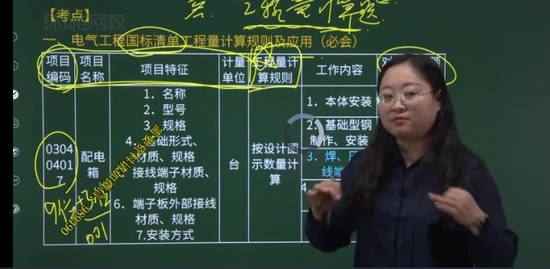 环球网校
案、工程量计算题
【考点】
一、电气工程国标清单工程量计算规则及应用（必会）
项目编码
项目名称
项目特征
计量单位
工程量计算规则
工作内容
0304
0401
7
配电箱
1．名称
2．型号
3．规格
材质、规格
接线端子材质、
规格
6．端子板外部接线
材质、规格
7.安装方式
台
按设计图示数量计算
1．本体安装
2．基础型钢
制作、安装
3．焊、压
接线端
4
001